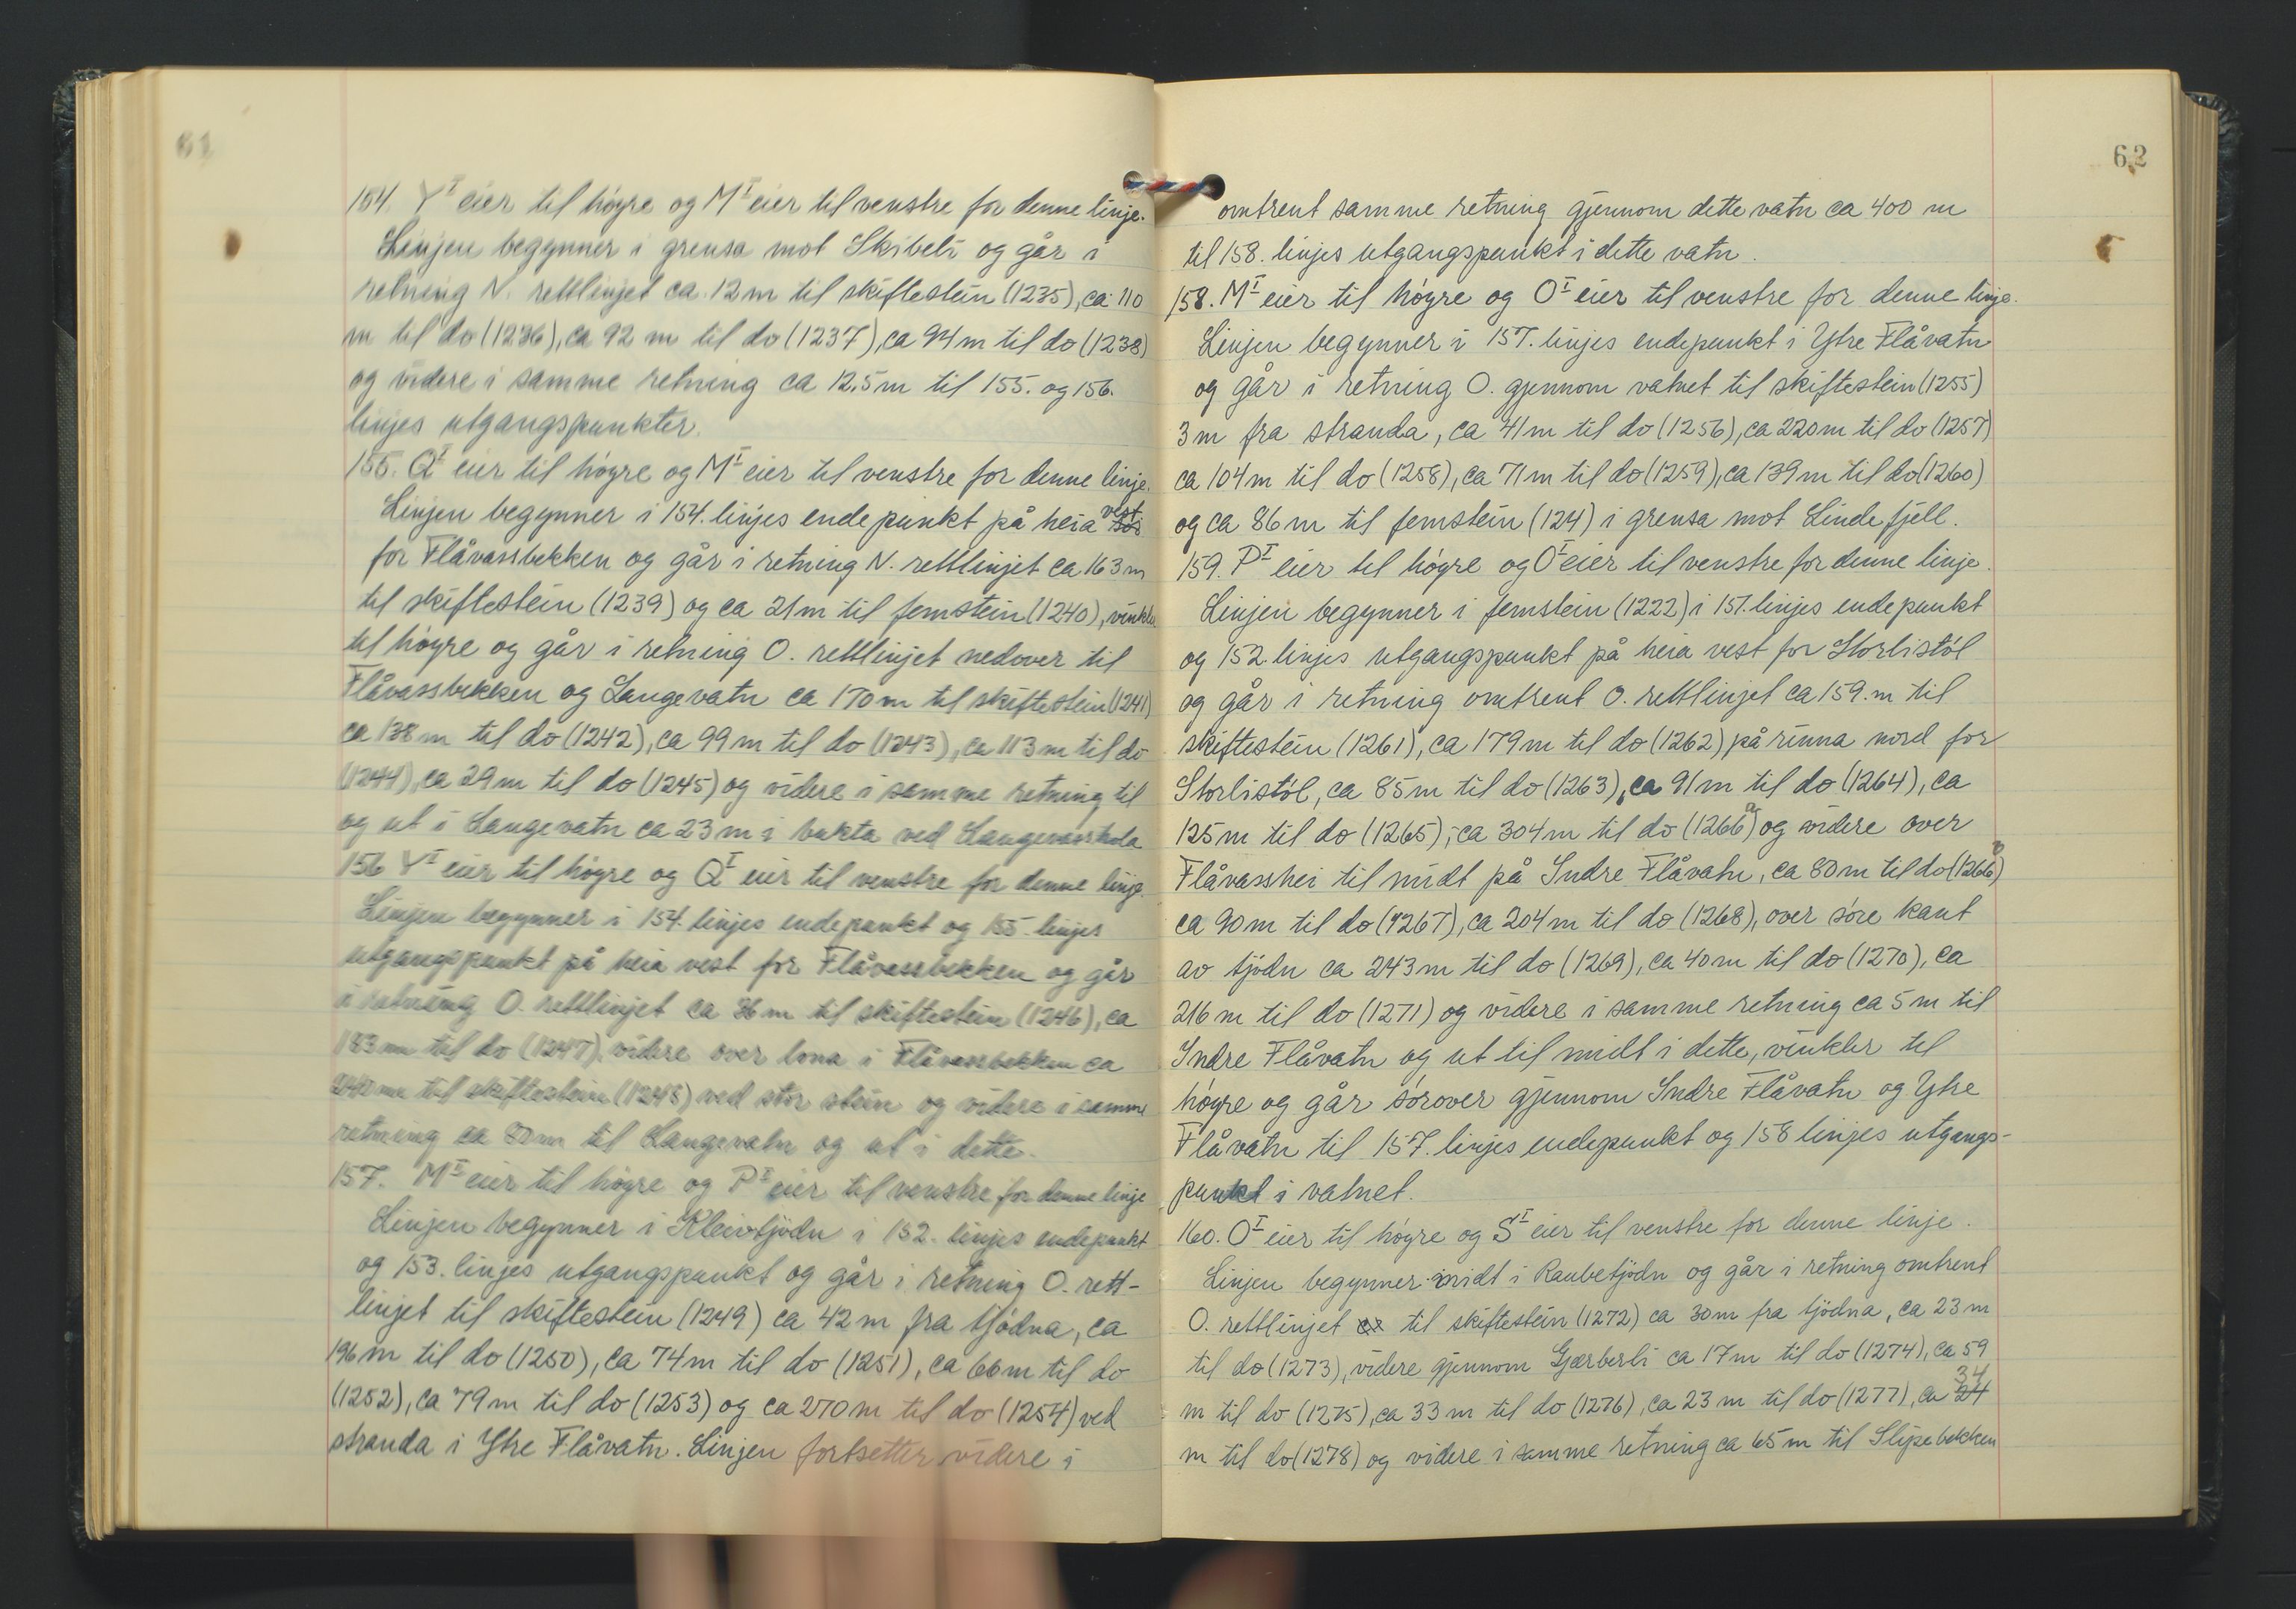 61
154. Y^I eier til høyre og M^I eier til venstre for denne linje.
Linjen begynner i grensa mot Skibeli og går i
retning N. rettlinjet ca. 12 m til skiftestein (1235), ca 110
m til do (1236), ca 92 m til do (1237), ca 94 m til do (1238)
og videre i samme retning ca 12,5 m til 155. og 156.
linjes utgangspunkter.
155. Q^I eier til høyre og M^I eier til venstre for denne linje.
Linjen begynner i 154. linjes endepunkt på heia vest
for Flåvassbekken og går i retning N. rettlinjet ca 163 m
til skiftestein (1239) og ca 21 m til femstein (1240), vinkler
til høyre og går i retning O. rettlinjet nedover til
Flåvassbekken og Langevatn ca 170 m til skiftestein (1241)
ca 138 m til do (1242), ca 99 m til do (1243), ca 113 m til do
(1244), ca 29 m til do (1245) og videre i samme retning til
og ut i Langevatn ca 23 m i bukta ved
156 Y^I eier til høyre og Q^I eier til venstre for denne linje.
Linjen begynner i 154. linjes endepunkt og 155. linjes
utgangspunkt på heia vest for Flåvassbekken og går
i retning O. rettlinjet ca 36 m til skiftestein (1246), ca
183 m til do (1247), videre over lona i Flåvassbekken ca
til skiftestein (1248) ved stor stein og videre i samme
retning ca m til Langevatn og ut i dette.
157. M^I eier til høyre og P^I eier til venstre for denne linje
Linjen begynner i Kleivtjödn i 152. linjes endepunkt
og 153. linjes utgangspunkt og går i retning O. rett-
linjet til skiftestein (1249) ca 42 m fra tjödna, ca
196 m til do (1250), ca 74 m til do (1251), ca 66 m til do
(1252), ca 79 m til do (1253) og ca 270 m til do (1254) ved
stranda i Ytre Flåvatn. Linjen fortsetter videre i
62
omtrent samme retning gjennom dette vatn ca 400 m
til 158. linjes utgangspunkt i dette vatn.
158. M^I eier til høyre og O^I eier til venstre for denne linje.
Linjen begynner i 157. linjes endepunkt i Ytre Flåvatn
og går i retning O. gjennom vatnet til skiftestein (1255)
3 m fra stranda, ca 41 m til do (1256), ca 220 m til do (1257)
ca 104 m til do (1258), ca 71 m til do (1259), ca 139 m til do (1260)
og ca 86 m til femstein (124) i grensa mot Lindefjell.
159. P^I eier til høyre og O^I eier til venstre for denne linje.
Linjen begynner i femstein (1222) i 151. linjes endepunkt
og 152. linjes utgangspunkt på heia vest for Storlistöl
og går i retning omtrent O. rettlinjet ca 159. m til
skiftestein (1261), ca 179 m til do (1262) på rinna nord for
Storlistöl, ca 85 m til do (1263), ca 91 m til do (1264), ca
125 m til do (1265), ca 304 m til do (1266^a) og videre over
Flåvasshei til midt på Indre Flåvatn, ca 80 m til do (1266^b)
ca 90 m til do (1267), ca 204 m til do (1268), over söre kant
av tjödn ca 243 m til do (1269), ca 40 m til do (1270), ca
216 m til do (1271) og videre i samme retning ca 5 m til
Indre Flåvatn og ut til midt i dette, vinkler til
høyre og går sörover gjennom Indre Flåvatn og Ytre
Flåvatn til 157. linjes endepunkt og 158 linjes utgangs-
punkt i vatnet.
160. O^I eier til høyre og S^I eier til venstre for denne linje.
Linjen begynner midt i Raubetjödn og går i retning omtrent
O. rettlinjet til skiftestein (1272) ca 30 m fra tjödna, ca 23 m
til do (1273), videre gjennom Gjærberli ca 17 m til do (1274), ca 59
m til do (1275), ca 33 m til do (1276), ca 23 m til do (1277), ca 34
m til do (1278) og videre i samme retning ca 65 m til Slipebekken